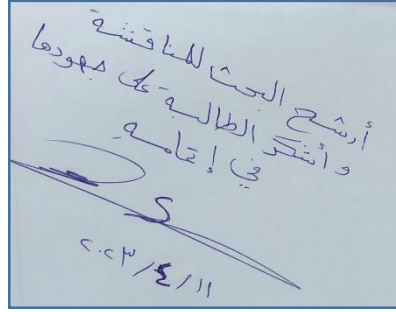 أرشح البحث للمناقشة
و أشكر الطالبة على جهودها
في إتمامه
٢٠٢٣/٤/١١